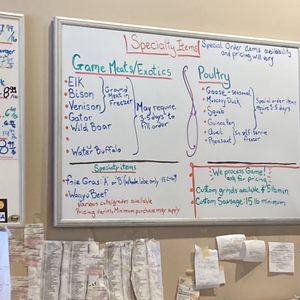 Specialty Items
Special Order items availability
and pricing will vary
Game Meats/Exotics
Elk
Bison
Venison
Gator
Wild Boar
Water Buffalo
Ground
Meat in
freezer
May require
3-5 days to
fill order
Poultry
Goose - seasonal
Muscovy Duck
Squab
Guinea Hen
Quail
Pheasant
Special order items
require 3-5 days
in self serve
freezer
Specialty items
Foie Gras: "A" or "B" (whole lobe only
Wagyu Beef
Various cuts/grades available
Pricing varies, Minimum purchase may apply
We process Game!
ask for pricing
Custom grinds available 5 lb min.
Custom Sausage: 15 lb minimum